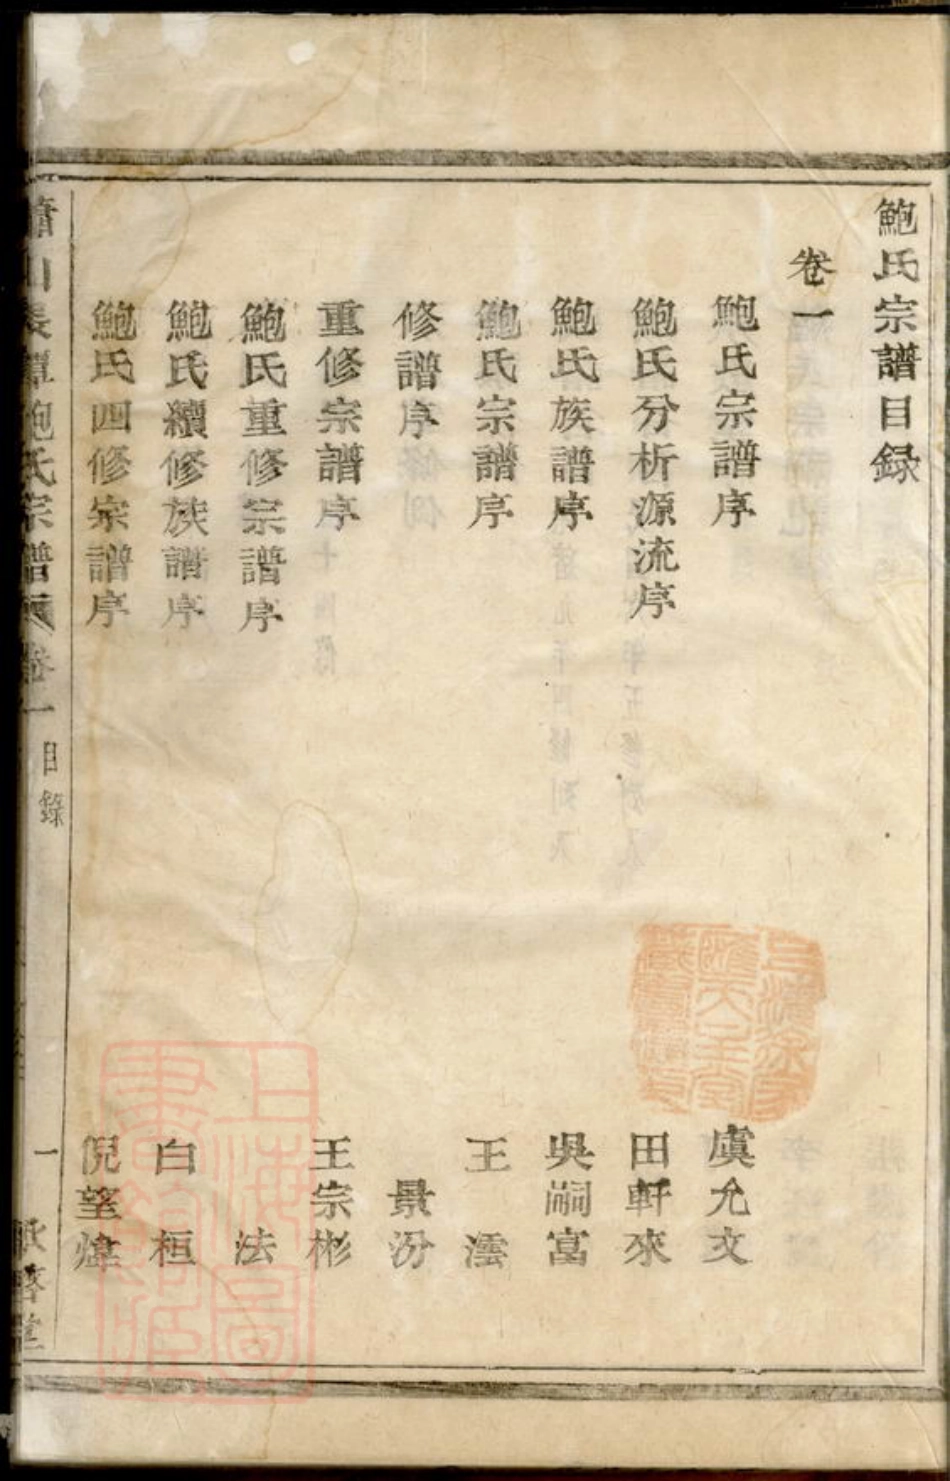 鮑氏宗譜目録
卷一
鮑氏宗譜序 虞允文
鮑氏分析源流序 田軒來
鮑氏族譜序 吳嗣富
鮑氏宗譜序 王澐
修譜序 景汾
重修宗譜序 王宗彬
鮑氏重修宗譜序 法
鮑氏續修族譜序 白桓
鮑氏四修宗譜序 倪望煒
蕭山長潭鮑氏宗譜 卷一 目錄 一
上海圖書館藏